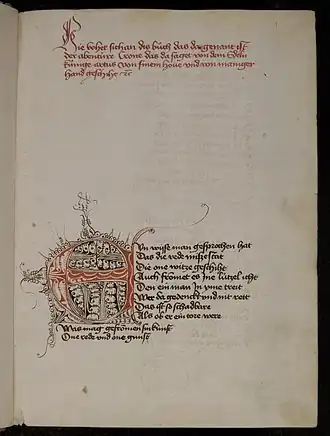 Hie hebet sich an dis buch das da genant ist
der abentúre Crone das da saget von dem Edeln
kúnige artus von sinem houe vnd von maniger
hand geschiht etc
EYn wise man gesprochen hat
Das die rede missestat
Die one witze geschiht
Auch fromet es jne lútzel icht
Den ein man In yme treit
Wer da gedenckt vnd nit reit
Das ist so schadbare
Als ob er ein tore were
Was mag gefromen sin kunst
One rede vnd one gunst